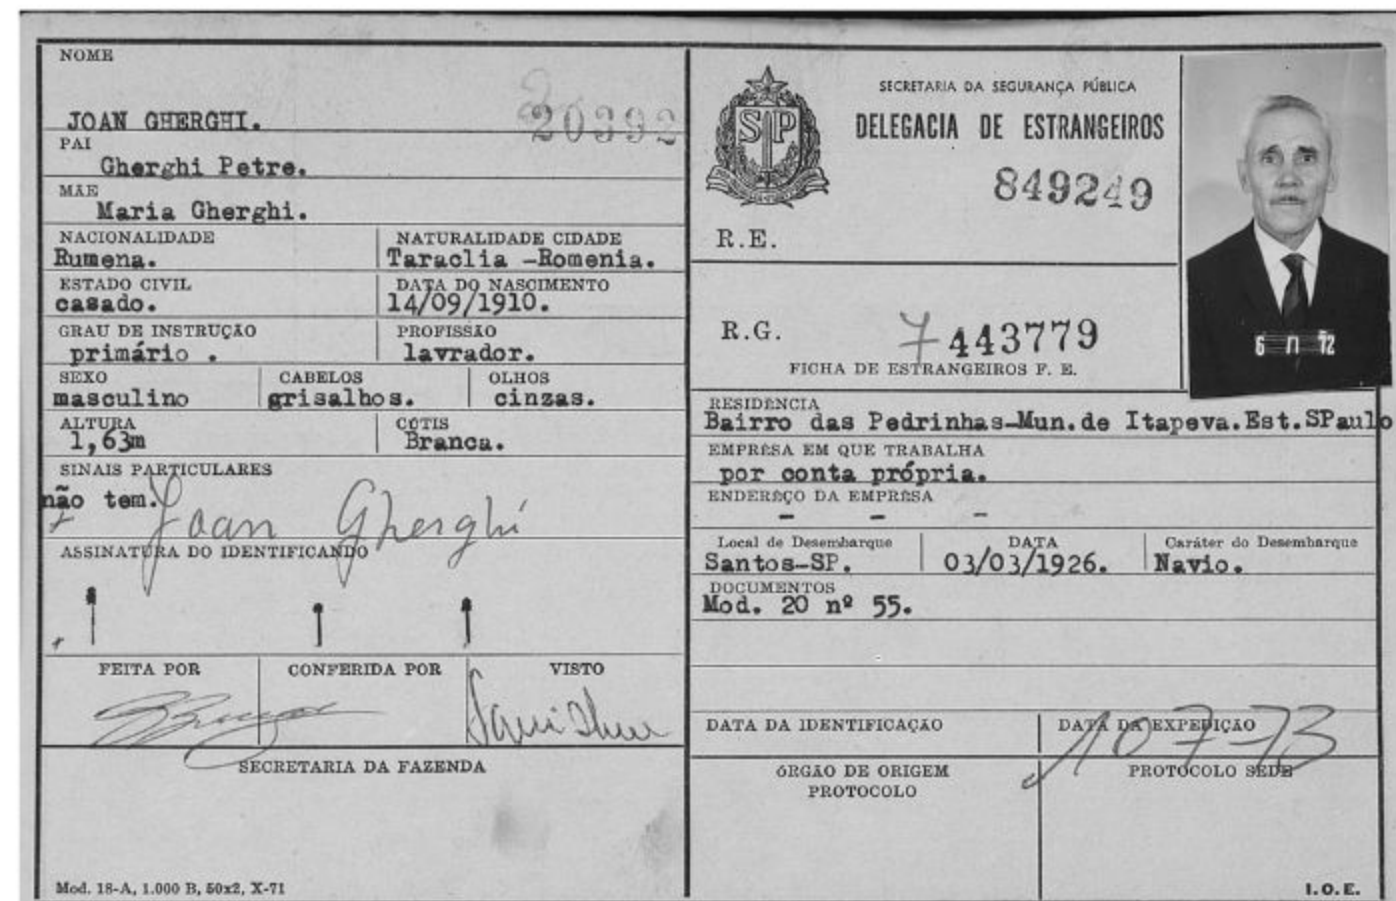 NOME
20392
JOAN GHERGHI.
PAI
Gherghi Petre.
MÃE
Maria Gherghi.
NACIONALIDADE
Rumena.
NATURALIDADE CIDADE
Taraclia -Romenia.
ESTADO CIVIL
casado.
DATA DO NASCIMENTO
14/09/1910.
GRAU DE INSTRUÇÃO
primário .
PROFISSÃO
lavrador.
SEXO
masculino
CABELOS
grisalhos.
OLHOS
cinzas.
ALTURA
1,63m
CÚTIS
Branca.
SINAIS PARTICULARES
não tem.
Joan Gherghi
ASSINATURA DO IDENTIFICANDO
FEITA POR
CONFERIDA POR
VISTO
SECRETARIA DA FAZENDA
Mod. 18-A, 1.000 B, 50x2, X-71
SP
SECRETARIA DA SEGURANÇA PÚBLICA
DELEGACIA DE ESTRANGEIROS
849249
R.E.
R.G.
7 443779
FICHA DE ESTRANGEIROS F. E.
RESIDÊNCIA
Bairro das Pedrinhas-Mun.de Itapeva.Est.SPaulo
EMPRÊSA EM QUE TRABALHA
por conta própria.
ENDERÊÇO DA EMPRÊSA
- - -
Local de Desembarque
Santos-SP.
DATA
03/03/1926.
Caráter do Desembarque
Navio.
DOCUMENTOS
Mod. 20 nº 55.
DATA DA IDENTIFICAÇÃO
DATA DA EXPEDIÇÃO
107-73
ÓRGÃO DE ORIGEM
PROTOCOLO
PROTOCOLO SEDE
I.O.E.